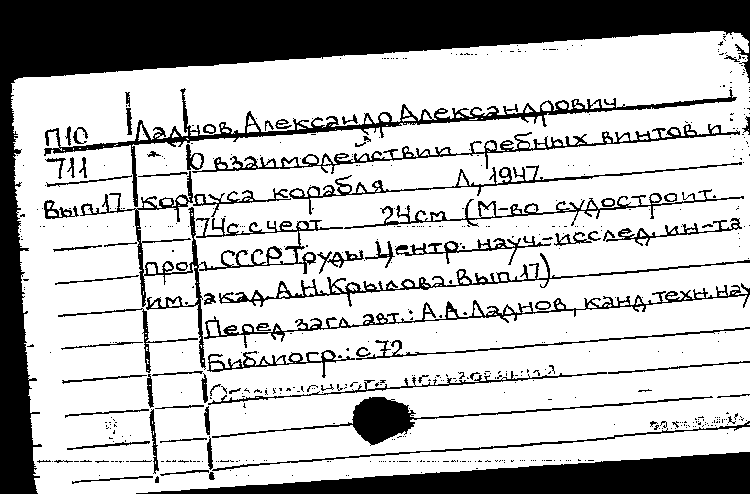 П10 Ладнов, Александр Александрович.
711 О взаимодействии гребных винтов и
Вып.17 корпуса корабля. Л., 1947.
74с. с черт. 24см (М-во судостроит.
пром. СССР. Труды Центр. науч.-исслед. ин-та
им. акад. А.Н.Крылова. Вып.17).
Перед загл. авт.: А.А.Ладнов, канд. техн. нау
Библиогр.: с.72.
Ограниченного пользования.